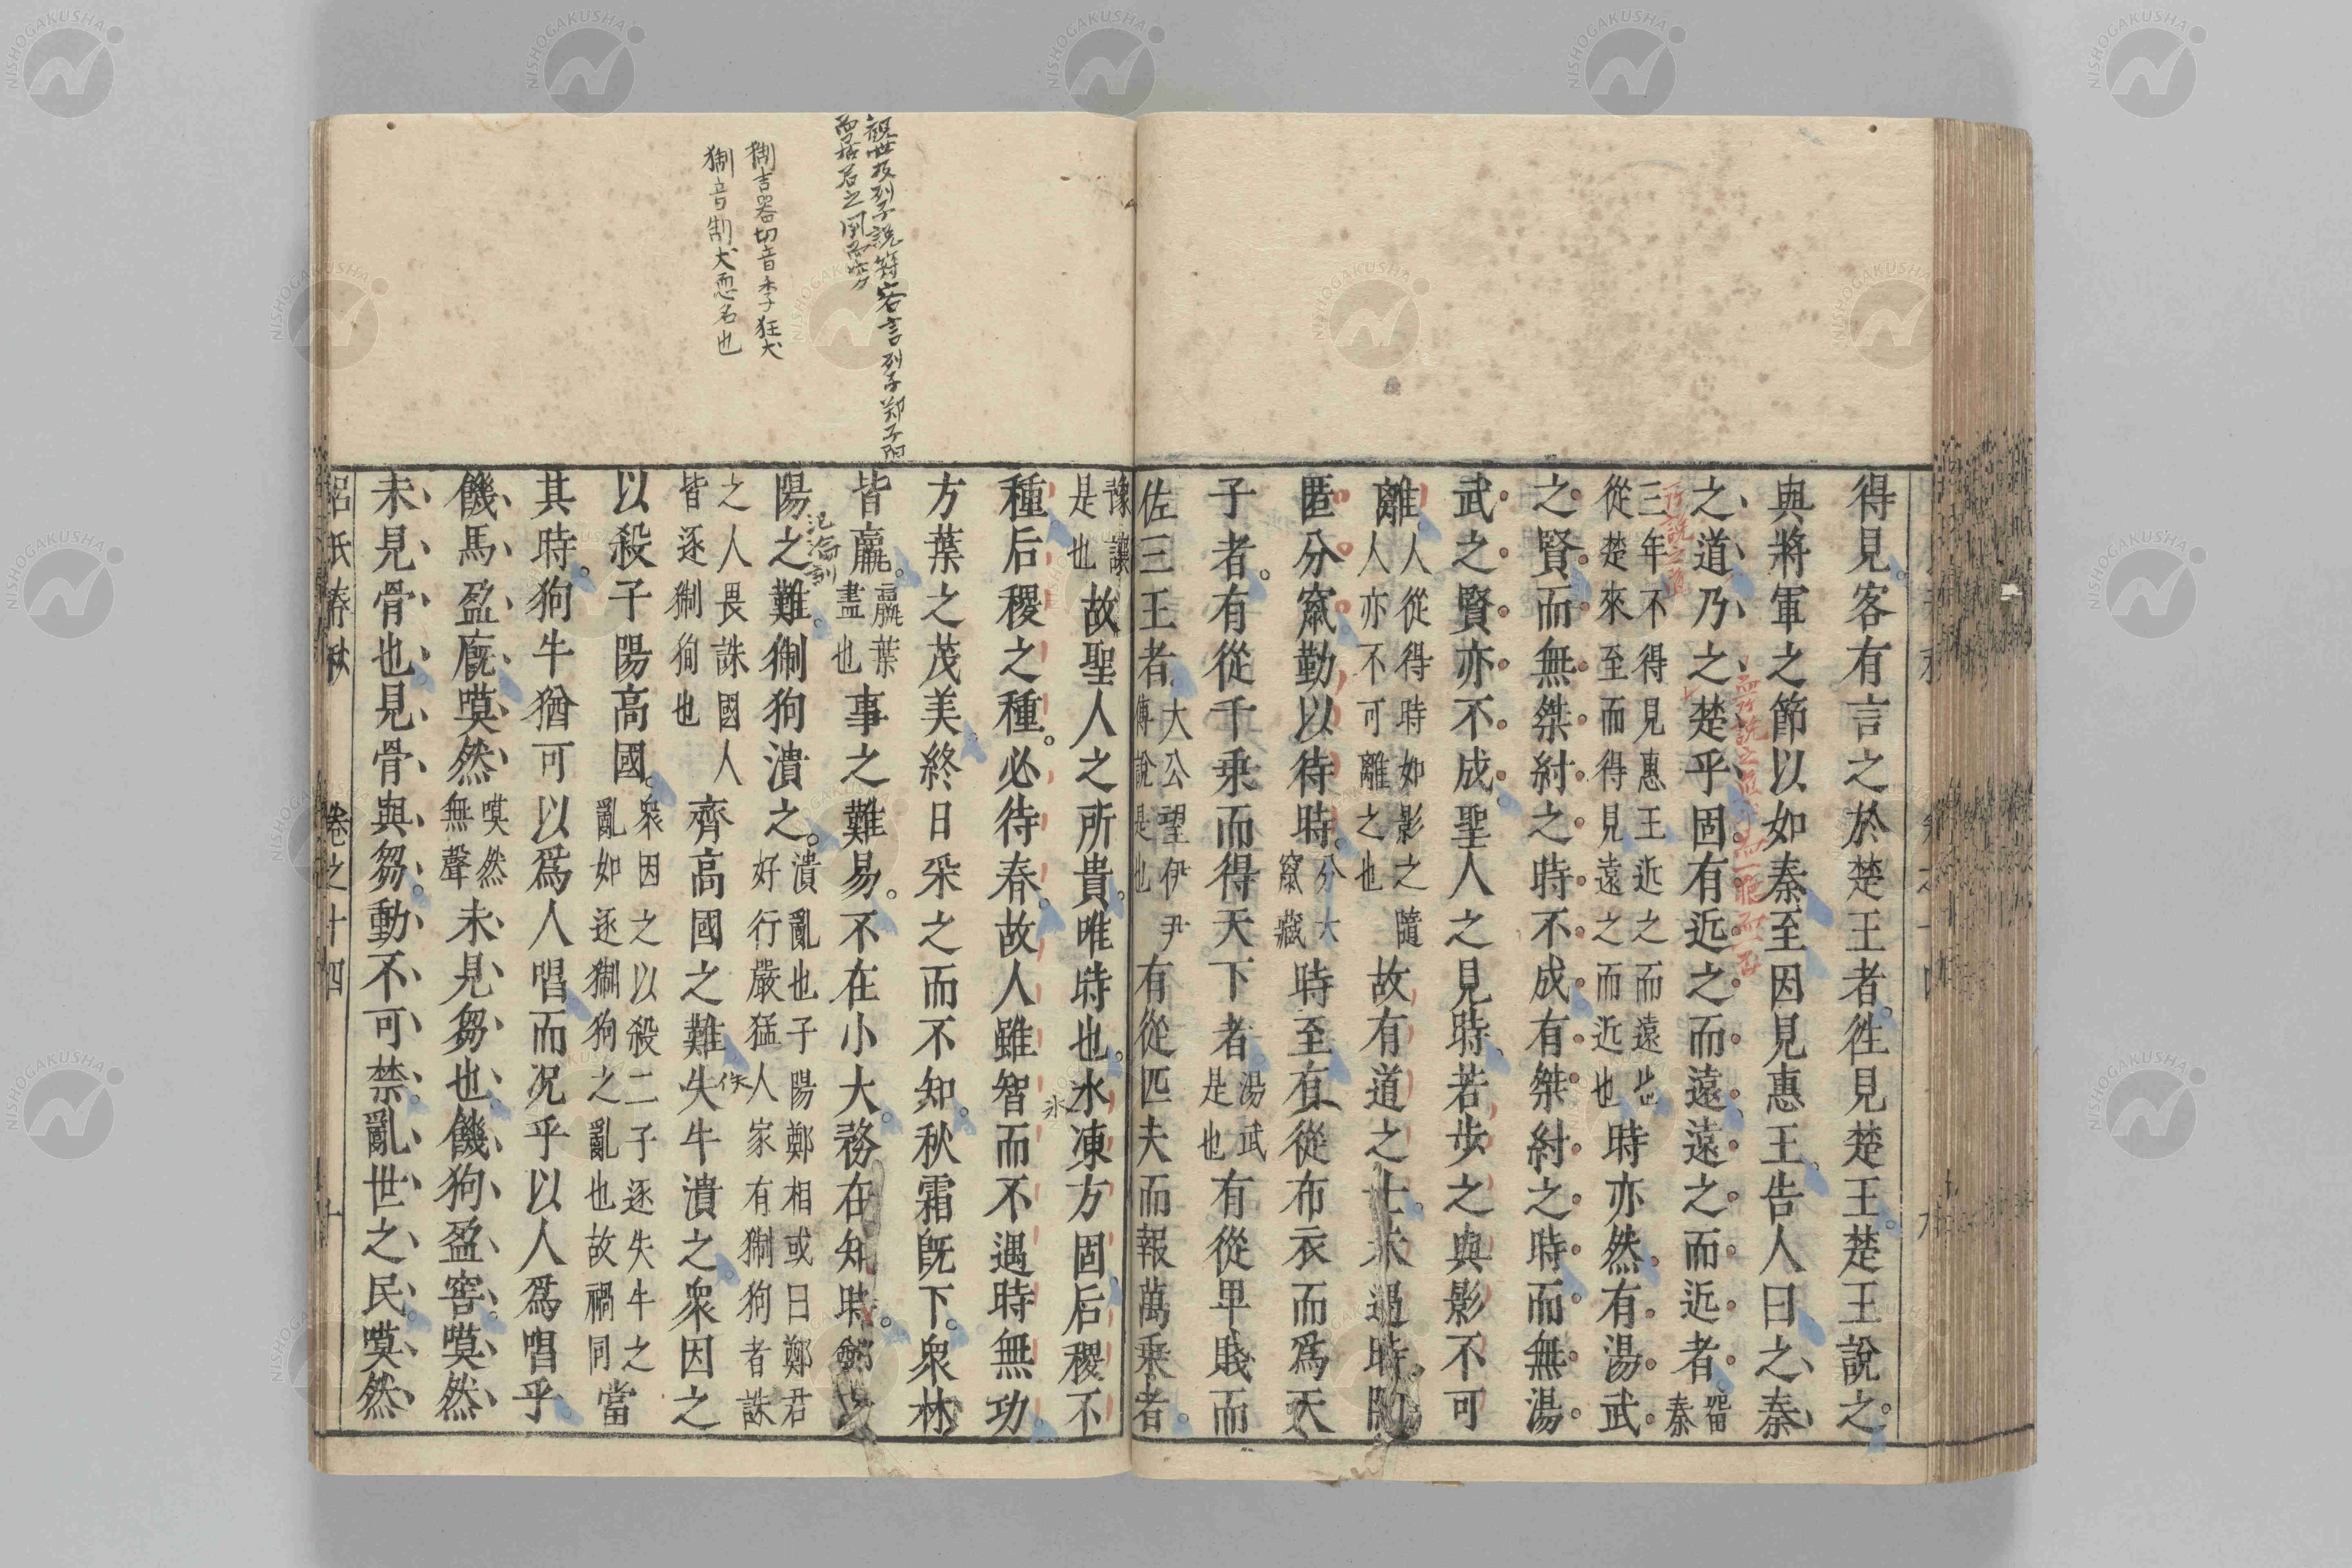 得見客有言之於楚王者徃見楚王楚王說之
與將軍之節以如秦至因見惠王告人曰之秦
之道乃之楚乎固有近之而遠遠之而近者留秦
三年不得見惠王近之而遠也從楚來至而得見遠之而近也時亦然有湯武
之賢而無桀紂之時不成有桀紂之時而無湯
武之賢亦不成聖人之見時若步之與影不可
離人從得時如影之隨人亦不可離之也故有道之士未遇時隱
匿分竄勤以待時分大竄藏時至有從布衣而爲天
子者有從千乘而得天下者湯武是也有從卑賤而
佐三王者大公望伊尹傅說是也有從匹夫而報萬乘者
豫讓是也故聖人之所貴唯時也水凍方固后稷不
種后稷之種必待春故人雖智而不遇時無功
方葉之茂美終日采之而不知秋霜旣下衆林
皆羸羸葉盡也事之難易不在小大務在知時鄭子
陽之難猘狗潰之潰亂也子陽鄭相或曰鄭君好行嚴猛人家有猘狗者誅
之人畏誅國人皆逐猘狗也齊高國之難失牛潰之衆因之
以殺子陽高國衆因之以殺二子逐失牛之亂如逐猘狗之亂也故禍同當
其時狗牛猶可以爲人唱而况乎以人爲唱乎
饑馬盈廐嘆然嘆然無聲未見芻也饑狗盈窖嘆然
未見骨也見骨與芻動不可禁亂世之民嘆然
呂氏春秋 卷之十四 十
猘吉器切音季狂犬
猘音制犬惡名也
氾論訓
佚
氷